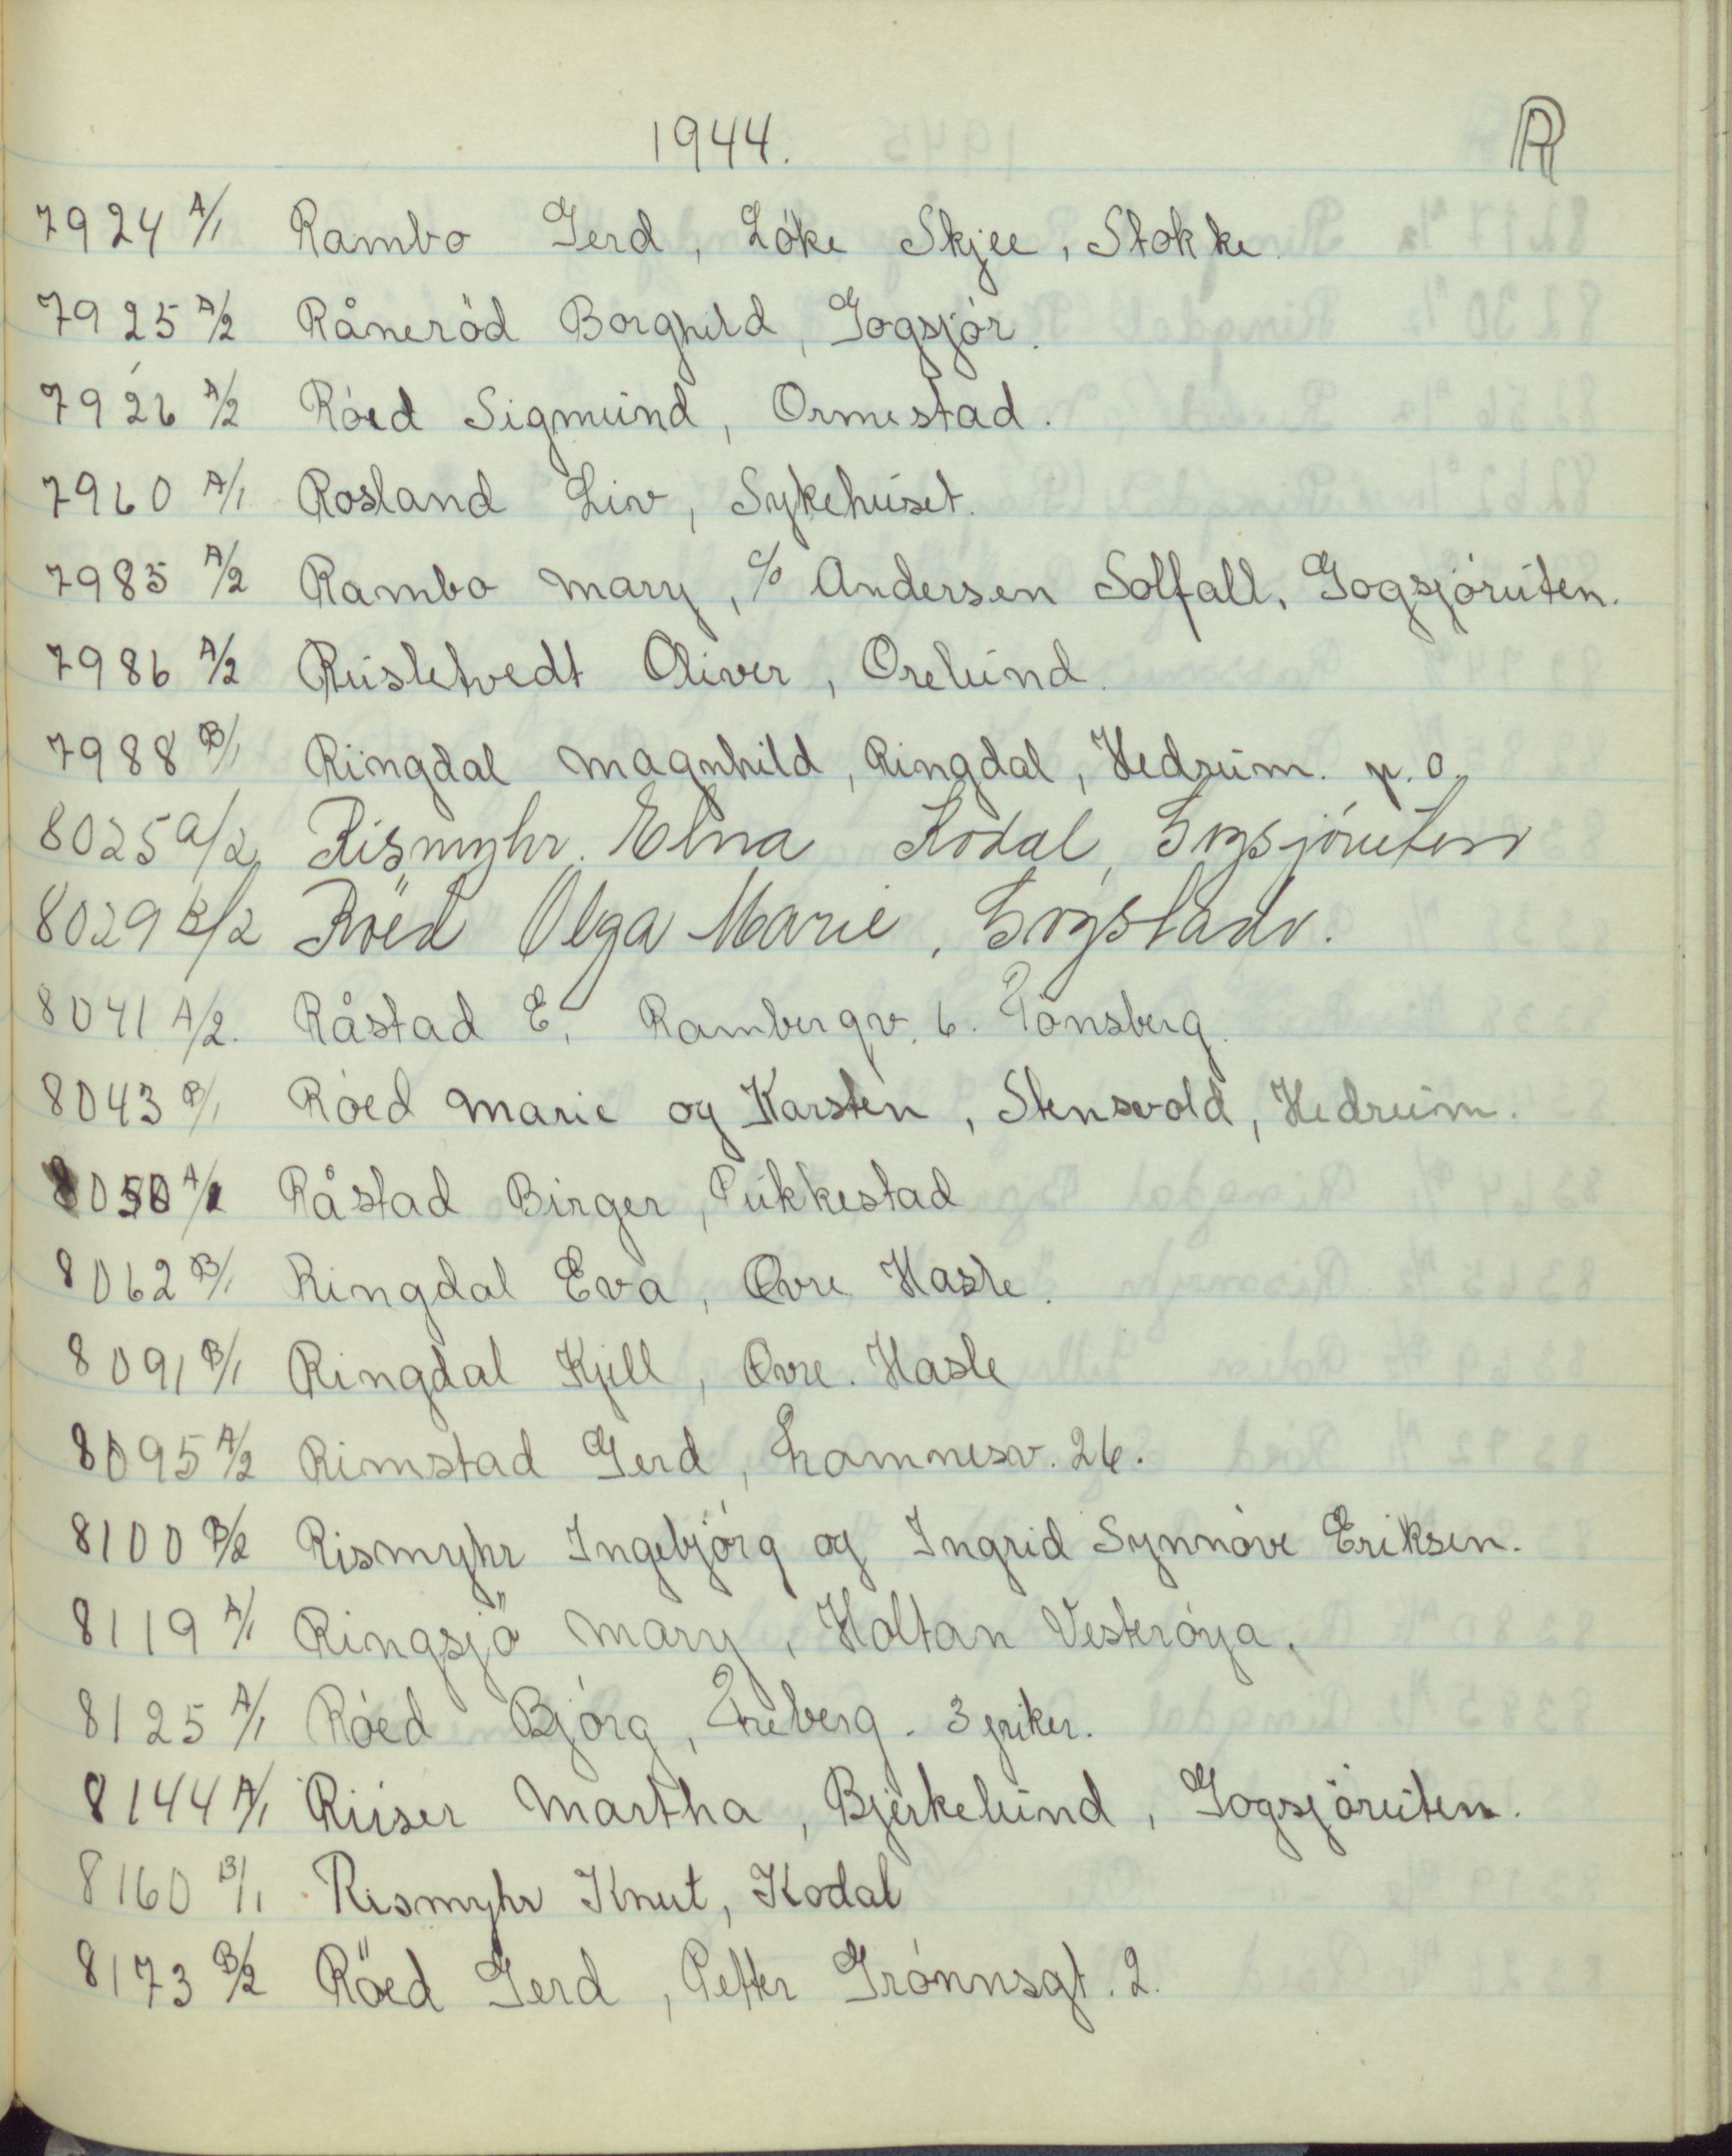 1944. R
7924 A/1 Rambo Gerd, Löke Skjee, Stokke.
7925 A/2 Råneröd Borghild, Gogsjör.
7926 A/2 Röed Sigmund, Ormestad.
7960 A/1 Rosland Liv, Sykehuset.
7985 A/2 Rambo Mary, c/o Andersen Solfall, Gogsjöruten.
7986 A/2 Rusletvedt Oliver, Orelund.
7988 B/1 Ringdal Magnhild, Ringdal, Hedrum. p.o.
8025 a/2 Rismyhr. Elna Kodal, Gogsjöruten
8029 B/2 Röed Olga Marie, Gogstadv.
8041 A/2. Råstad E, Rambergv. 6. Tönsberg.
8043 B/1 Röed Marie og Karsten, Stensvold, Hedrum.
8050 A/1 Råstad Birger, Pukkestad
8062 B/1 Ringdal Eva, Øvre Hasle.
8091 B/1 Ringdal Kjell, Øvre. Hasle
8095 A/2 Rimstad Gerd, Framnesv. 26.
8100 B/2 Rismyhr Ingebjörg og Ingrid Synnöve Eriksen.
8119 A/1 Ringsjö Mary, Holtan Vesteröya.
8125 A/1 Röed Björg, Freberg. 3 priker.
8144 A/1 Riiser Martha, Bjerkelund, Gogsjöruten.
8160 B/1 Rismyhr Knut, Kodal
8173 B/2 Röed Gerd, Petter Grönnsgt. 2.